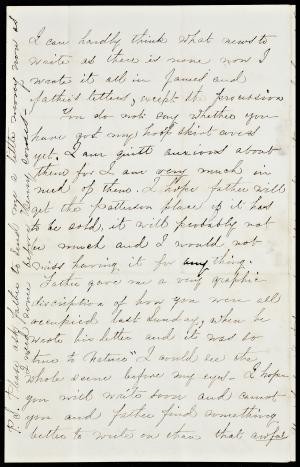 I can hardly think what news to
write as there is none now I
wrote it all in James and
Pattie's letters, except the procession
You do not say whether you
have got my hoop skirt covers
yet. I am quite anxious about
them for I am very much in
need of them. I hope father will
get the Patterson place if it has
to be sold, it will probably not
be much and I would not
miss having it for any thing.
Father gave me a very graphic
discription of how you were all
occupied last Sunday, when he
wrote his letter and it was so
true to "Nature" I could see the
whole scene before my eyes. I hope
you will write soon and cannot
you and father find something
better to write on than that awful
P.S. Please ask father to send me a little money now as
I need some before thus